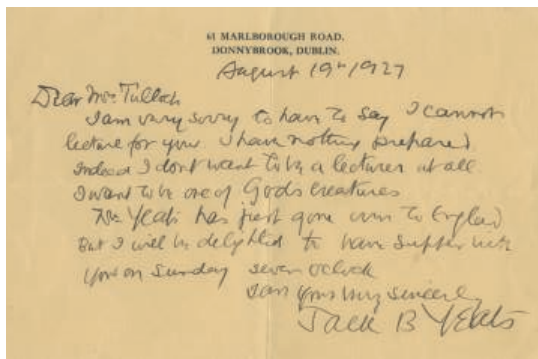 61 MARLBOROUGH ROAD,
DONNYBROOK, DUBLIN.
August 19th 1927
Dear Mrs Tulloch
I am very sorry to have to say I cannot
lecture for you. I have nothing prepared.
Indeed I dont want to be a lecturer at all.
I want to be one of Gods creatures
Mrs Yeats has just gone over to England
But I will be delighted to have supper with
you on Sunday seven oclock
I am yours very sincerely
Jack B Yeats